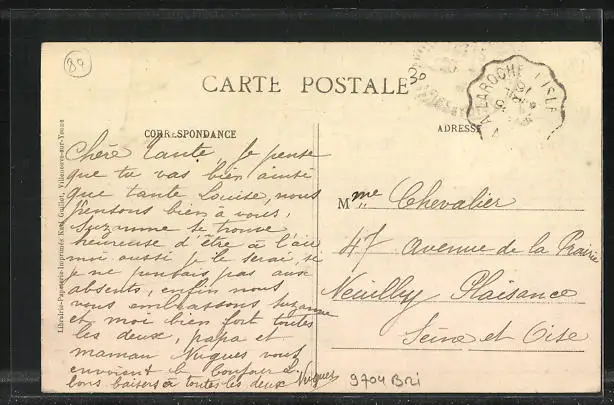 89
CARTE POSTALE
30
LAROCHE L'ISLE
CORRESPONDANCE
ADRESSE
Librairie-Papeterie-Imprimés Karl Guillot, Villeneuve-sur-Yonne
Chère Tante, Je pense
que tu vas bien ainsi
que tante Louise, nous
pensons bien à vous,
Suzanne se trouve
heureuse d'être à l'air
moi aussi je le serai, si
je ne pensais pas aux
absents, enfin nous
vous embrassons Suzanne
et moi bien fort toutes
les deux, papa et
maman Nugues vous
envoient le bonjour &
bons baisers à toutes les deux Nugues
Mme Chevalier
47 Avenue de la Prairie
Neuilly Plaisance
Seine et Oise
9704 Bri